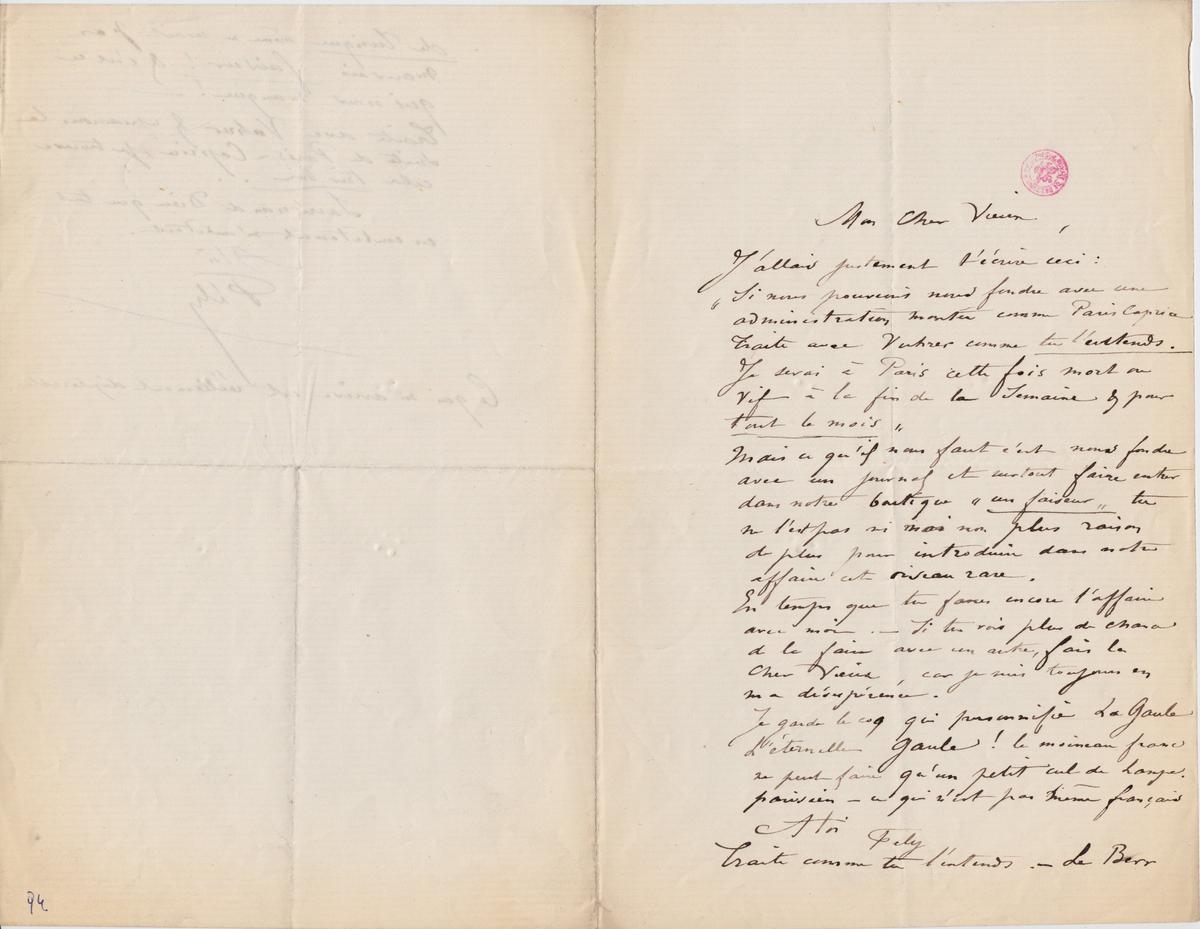 Mon Cher Vieux,
J'allais justement t'écrire ceci :
"Si nous pouvions nous fondre avec une
administration montée comme Paris Caprice
traite avec comme tu l'entends.
Je serai à Paris cette fois mort ou
vif à la fin de la Semaine & pour
tout le mois"
Mais ce qu'il nous faut c'est nous fondre
avec un journal et surtout faire entrer
dans notre boutique "un faiseur" tu
ne l'es pas ni moi non plus raison
de plus pour introduire dans notre
affaire cet oiseau rare.
En temps que tu fasses encore l'affaire
avec moi. — Si tu vois plus de chance
de la faire avec un autre, fais la
Cher Vieux, car je suis toujours en
ma désespérance.
Je garde le coq qui personnifie La Gaule
L'éternelle Gaule ! le moineau franc
ne peut faire qu'un petit cul de lampe.
parisien — ce qui n'est pas même français
A toi
Fély
Traite comme tu l'entends. — Le
94